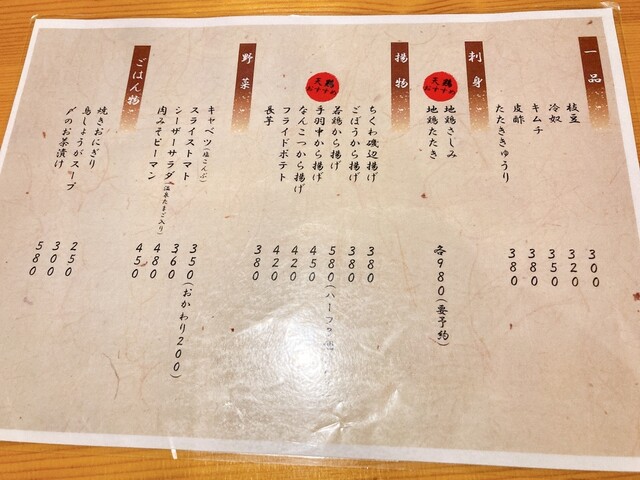 一品
枝豆 300
冷奴 320
キムチ 350
皮酢 380
たたききゅうり 380
刺身
天鶏
おすすめ
地鶏さしみ
地鶏たたき
各980(要予約)
揚物
ちくわ磯辺揚げ 380
ごぼうから揚げ 380
天鶏
おすすめ
若鶏から揚げ 580(ハーフ
手羽中から揚げ 450
なんこつから揚げ 420
フライドポテト 420
長芋 380
野菜
キャベツ(塩こんぶ) 350(おかわり200)
スライストマト 360
シーザーサラダ(温泉たまご入り) 480
肉みそピーマン 450
ごはん物
焼きおにぎり 250
鳥しょうがスープ 300
〆のお茶漬け 580